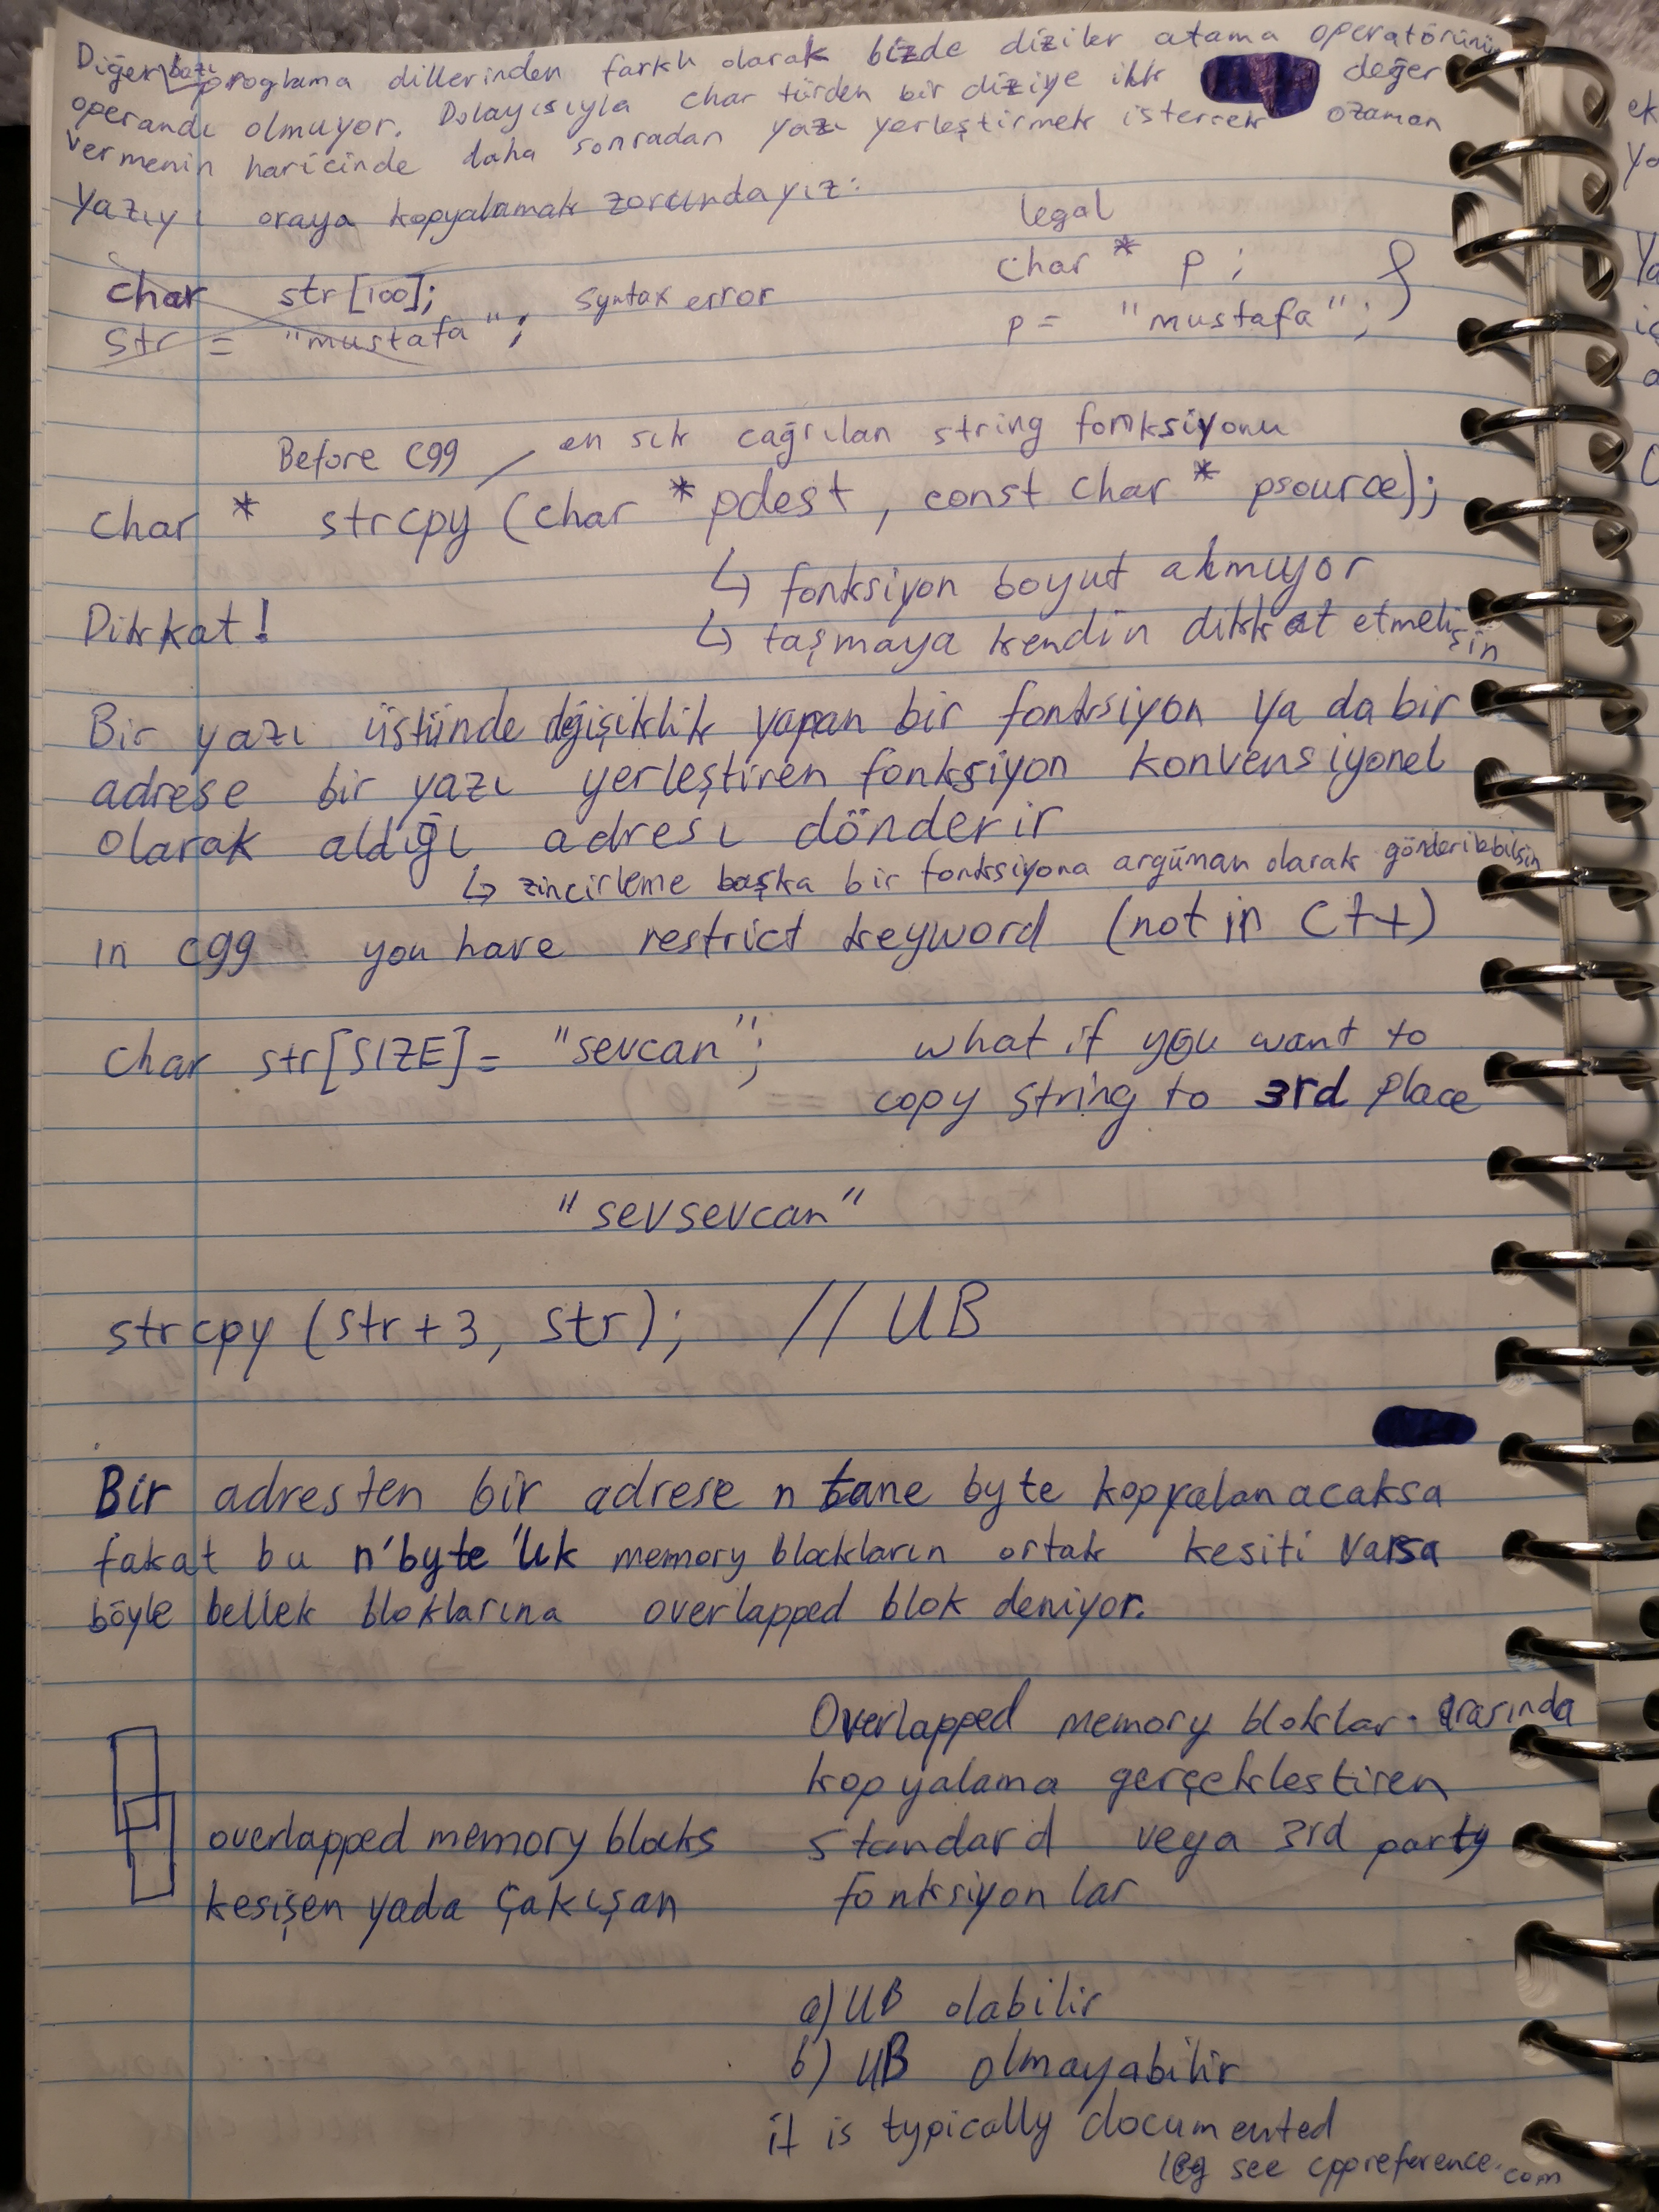 Diğer bazı programa dillerinden farklı olarak bizde diziler atama operatörünün
operandı olmuyor. Dolayısıyla char türden bir diziye ilk değer
vermenin haricinde daha sonradan yazı yerleştirmek istersek ozaman
yazıyı oraya kopyalamak zorundayız:
legal
char str[100];
str = "mustafa"; syntax error
char * p;
p = "mustafa";
Before C99
en sık cağrılan string fonksiyonu
char * strcpy (char * pdest, const char * psource);
↳ fonksiyon boyut almıyor
Dikkat!
↳ taşmaya kendin dikkat etmelisin
Bir yazı üstünde değişiklik yapan bir fonksiyon ya da bir
adrese bir yazı yerleştiren fonksiyon konvensiyonel
olarak aldığı adresi dönderir
↳ zincirleme başka bir fonksiyona argüman olarak gönderilebilsin
in C99 you have restrict keyword (not in C++)
char str[SIZE] = "sevcan";
what if you want to
copy string to 3rd place
"sevsevcan"
strcpy (str+3, str); // UB
Bir adresten bir adrese n tane byte kopyalanacaksa
fakat bu n'byte'lık memory blockların ortak kesiti varsa
böyle bellek bloklarına overlapped blok deniyor.
overlapped memory blocks
kesişen yada çakışan
Overlapped memory bloklar arasında
kopyalama gerçeklestiren
standard veya 3rd party
fonksiyonlar
a) UB olabilir
b) UB olmayabilir
it is typically documented
see cppreference.com